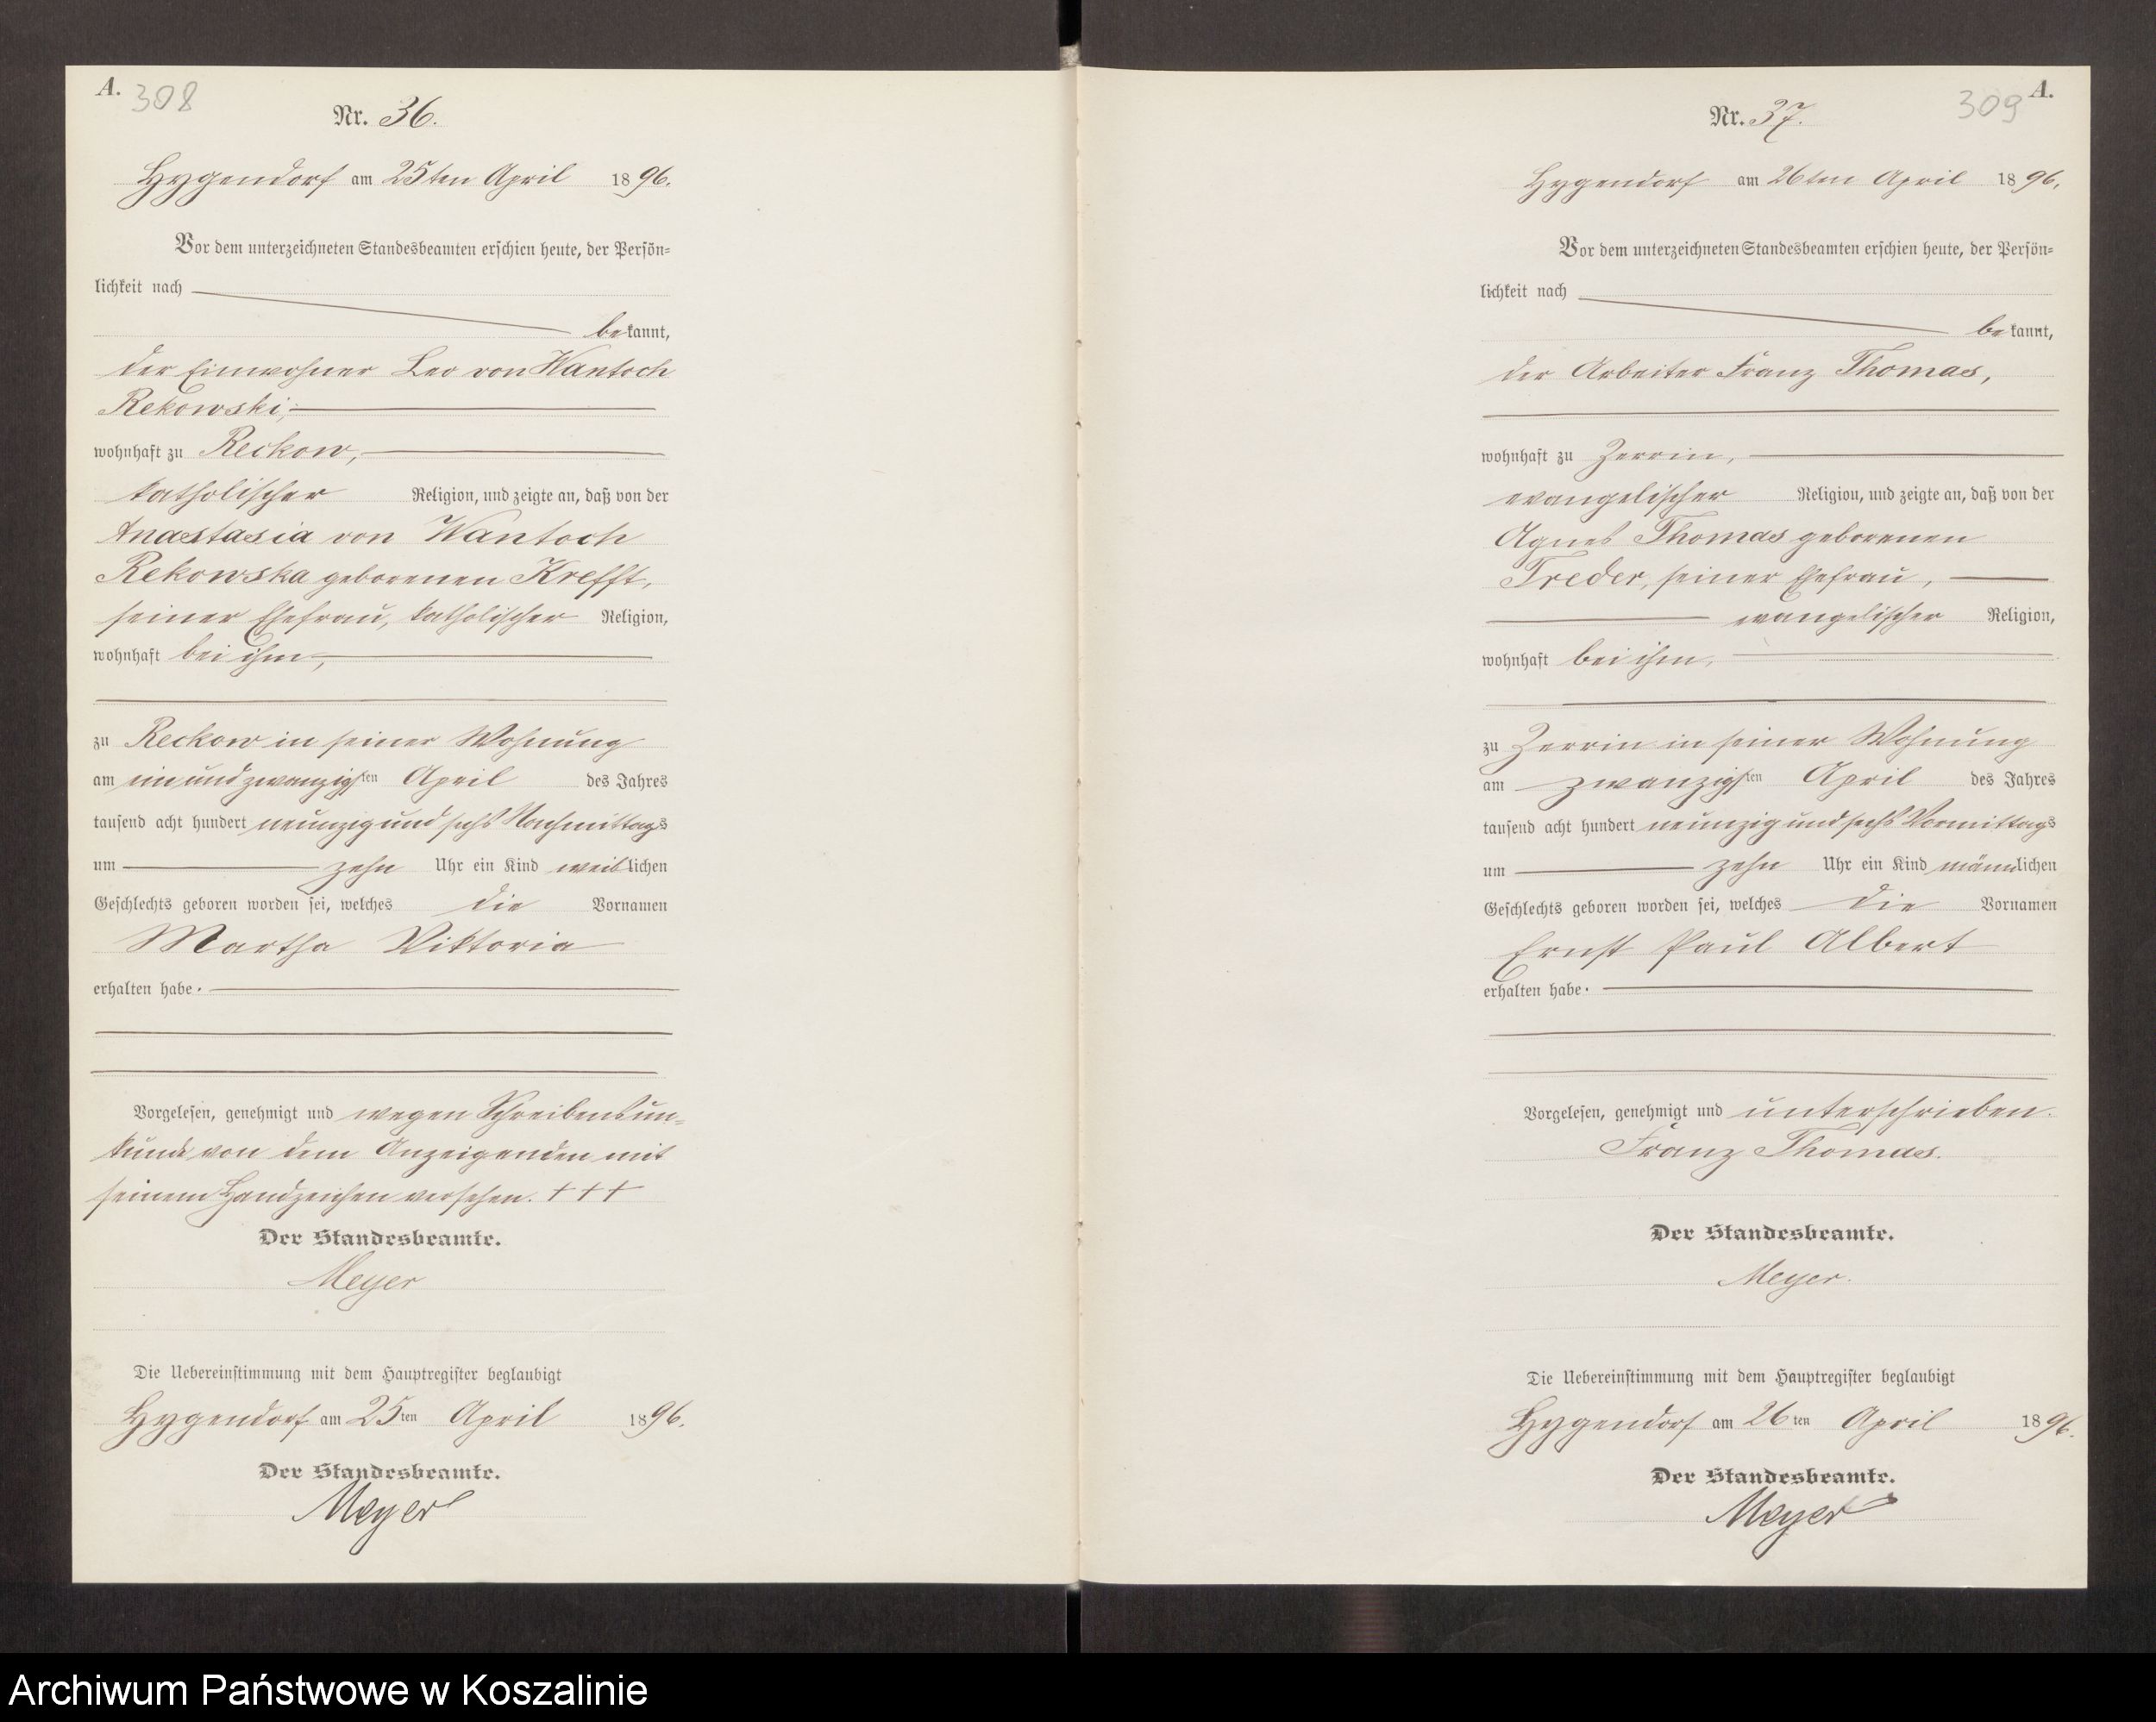 A. 308
Nr. 36.
Hygendorf am 25ten April 1896.
Vor dem unterzeichneten Standesbeamten erschien heute, der Persön-
lichkeit nach
bekannt,
der Einwohner Leo von Wantoch
Rekowski,
wohnhaft zu Reckow,
katholischer Religion, und zeigte an, daß von der
Anastasia von Wantoch
Rekowska geborenen Krefft,
seiner Ehefrau, katholischer Religion,
wohnhaft bei ihm,
zu Reckow in seiner Wohnung
am ein und zwanzigsten April des Jahres
tausend acht hundert neunzig und sechs Nachmittags
um zehn Uhr ein Kind weiblichen
Geschlechts geboren worden sei, welches die Vornamen
Martha Viktoria
erhalten habe.
Vorgelesen, genehmigt und wegen Schreibensun-
kunde von dem Anzeigenden mit
seinem Handzeichen versehen. +++
Der Standesbeamte.
Meyer
Die Uebereinstimmung mit dem Hauptregister beglaubigt
Hygendorf am 25ten April 1896.
Der Standesbeamte.
Meyer
309 A.
Nr. 37.
Hygendorf am 26ten April 1896.
Vor dem unterzeichneten Standesbeamten erschien heute, der Persön-
lichkeit nach
bekannt,
der Arbeiter Franz Thomas,
wohnhaft zu Zerrin,
evangelischer Religion, und zeigte an, daß von der
Agnes Thomas geborenen
Treder, seiner Ehefrau,
evangelischer Religion,
wohnhaft bei ihm,
zu Zerrin in seiner Wohnung
am zwanzigsten April des Jahres
tausend acht hundert neunzig und sechs Vormittags
um zehn Uhr ein Kind männlichen
Geschlechts geboren worden sei, welches die Vornamen
Ernst Paul Albert
erhalten habe.
Vorgelesen, genehmigt und unterschrieben.
Franz Thomas.
Der Standesbeamte.
Meyer.
Die Uebereinstimmung mit dem Hauptregister beglaubigt
Hygendorf am 26ten April 1896.
Der Standesbeamte.
Meyer
Archiwum Państwowe w Koszalinie